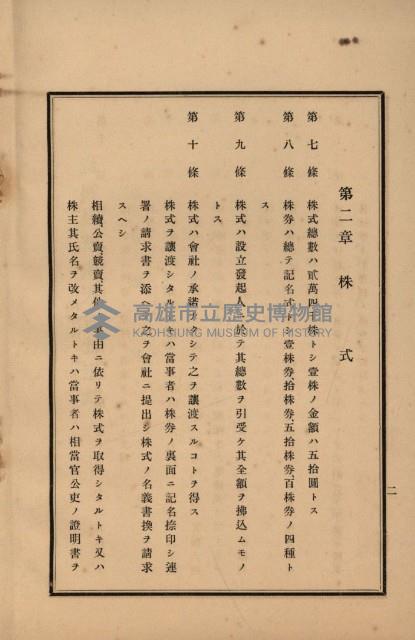 第二章 株式
第七條 株式總數ハ貳萬四千株トシ壹株ノ金額ハ五拾圓トス
第八條 株券ハ總テ記名式トシ壹株券、拾株券、五拾株券、百株券ノ四種ト
ス
第九條 株式ハ設立發起人ニ於テ其總數ヲ引受ケ其全額ヲ拂込ムモノ
トス
第十條 株式ハ會社ノ承諾ナクシテ之ヲ讓渡スルコトヲ得ス
株式ヲ讓渡シタルトキハ當事者ハ株券ノ裏面ニ記名捺印シ連
署ノ請求書ヲ添ヘ之ヲ會社ニ提出シ株式ノ名義書換ヲ請求
スヘシ
相續、公賣、競賣其他ノ事由ニ依リテ株式ヲ取得シタルトキ又ハ
株主其氏名ヲ改メタルトキハ當事者ハ相當官公吏ノ證明書ヲ
二
高雄市立歷史博物館
KAOHSIUNG MUSEUM OF HISTORY